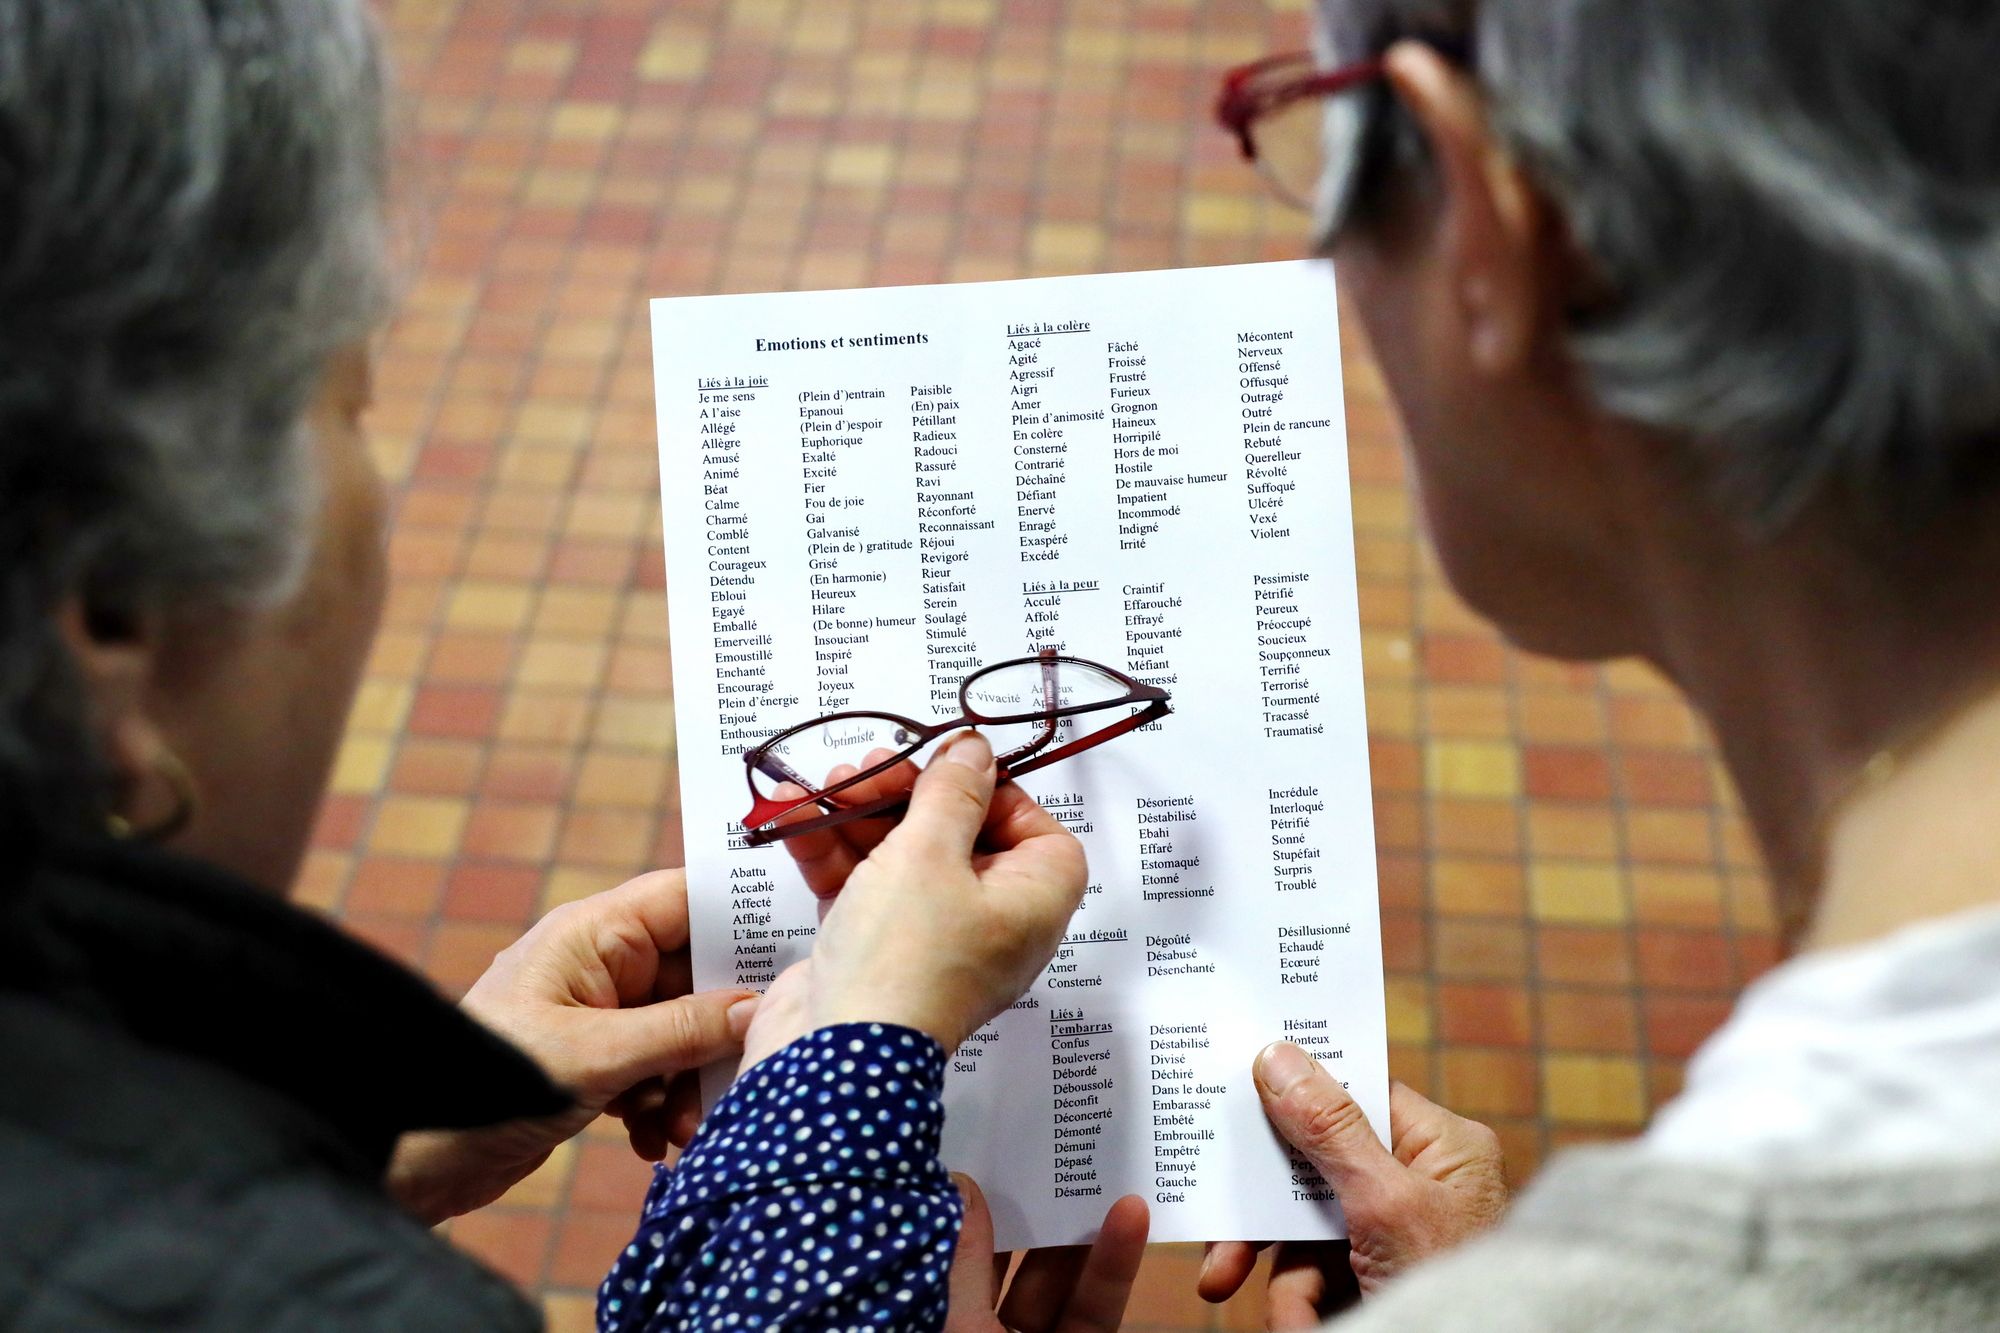 Emotions et sentiments
Liés à la joie
Je me sens
A l'aise
Allégé
Allègre
Amusé
Animé
Béat
Calme
Charmé
Comblé
Content
Courageux
Détendu
Ebloui
Egayé
Emballé
Emerveillé
Emoustillé
Enchanté
Encouragé
Plein d'énergie
Enjoué
(Plein d')entrain
Epanoui
(Plein d')espoir
Euphorique
Exalté
Excité
Fier
Fou de joie
Gai
Galvanisé
(Plein de ) gratitude
Grisé
(En harmonie)
Heureux
Hilare
(De bonne) humeur
Insouciant
Inspiré
Jovial
Joyeux
Léger
Optimiste
Paisible
(En) paix
Pétillant
Radieux
Radouci
Rassuré
Ravi
Rayonnant
Réconforté
Reconnaissant
Réjoui
Revigoré
Rieur
Satisfait
Serein
Soulagé
Stimulé
Surexcité
Tranquille
Plein de vivacité
Abattu
Accablé
Affecté
Affligé
L'âme en peine
Anéanti
Atterré
Attristé
Triste
Seul
Liés à la colère
Agacé
Agité
Agressif
Aigri
Amer
Plein d'animosité
En colère
Consterné
Contrarié
Déchaîné
Défiant
Enervé
Enragé
Exaspéré
Excédé
Fâché
Froissé
Frustré
Furieux
Grognon
Haineux
Horripilé
Hors de moi
Hostile
De mauvaise humeur
Impatient
Incommodé
Indigné
Irrité
Mécontent
Nerveux
Offensé
Offusqué
Outragé
Outré
Plein de rancune
Rebuté
Querelleur
Révolté
Suffoqué
Ulcéré
Vexé
Violent
Liés à la peur
Acculé
Affolé
Agité
Alarmé
Craintif
Effarouché
Effrayé
Epouvanté
Inquiet
Méfiant
Oppressé
Perdu
Pessimiste
Pétrifié
Peureux
Préoccupé
Soucieux
Soupçonneux
Terrifié
Terrorisé
Tourmenté
Tracassé
Traumatisé
Liés à la
Désorienté
Déstabilisé
Ebahi
Effaré
Estomaqué
Etonné
Impressionné
Incrédule
Interloqué
Pétrifié
Sonné
Stupéfait
Surpris
Troublé
au dégoût
Amer
Consterné
Dégoûté
Désabusé
Désenchanté
Désillusionné
Echaudé
Ecœuré
Rebuté
Liés à
l'embarras
Confus
Bouleversé
Débordé
Déboussolé
Déconfit
Déconcerté
Démonté
Démuni
Dépasé
Dérouté
Désarmé
Désorienté
Déstabilisé
Divisé
Déchiré
Dans le doute
Embarassé
Embêté
Embrouillé
Empêtré
Ennuyé
Gauche
Gêné
Hésitant
Honteux
Troublé